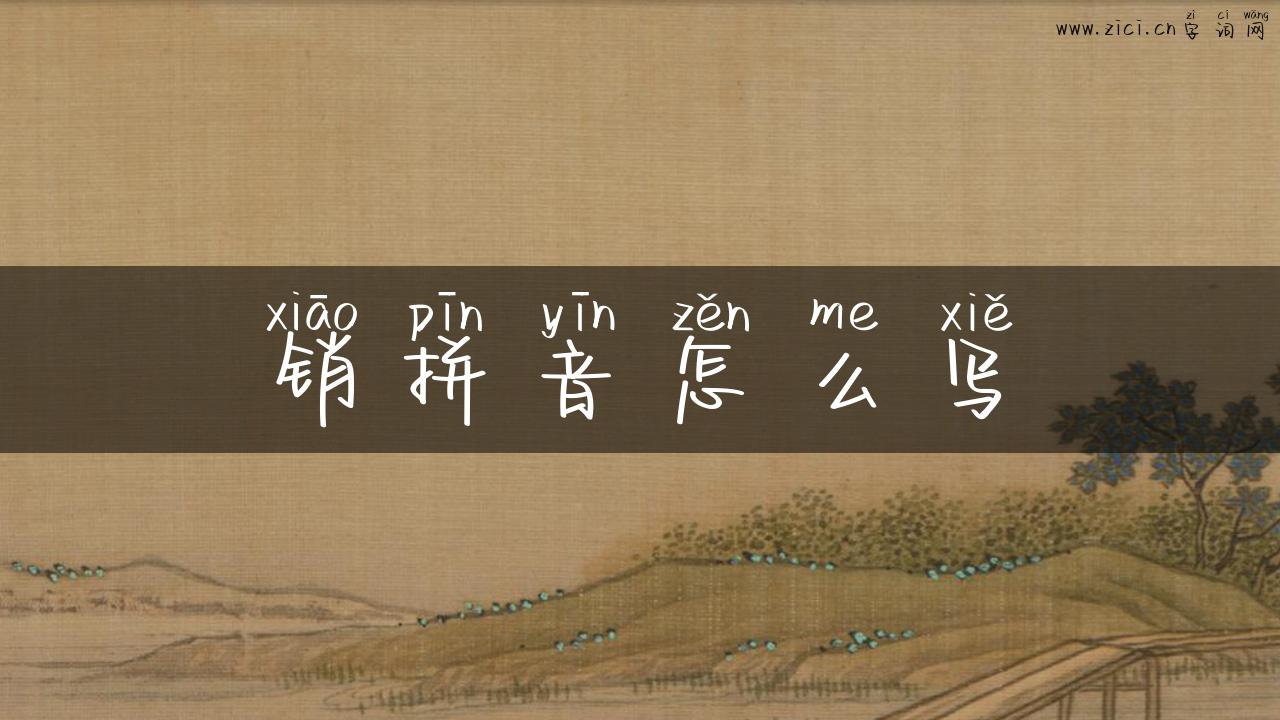 zì cí wǎng
www.zici.cn 字 词 网
xiāo pīn yīn zěn me xiě
销 拼 音 怎 么 写